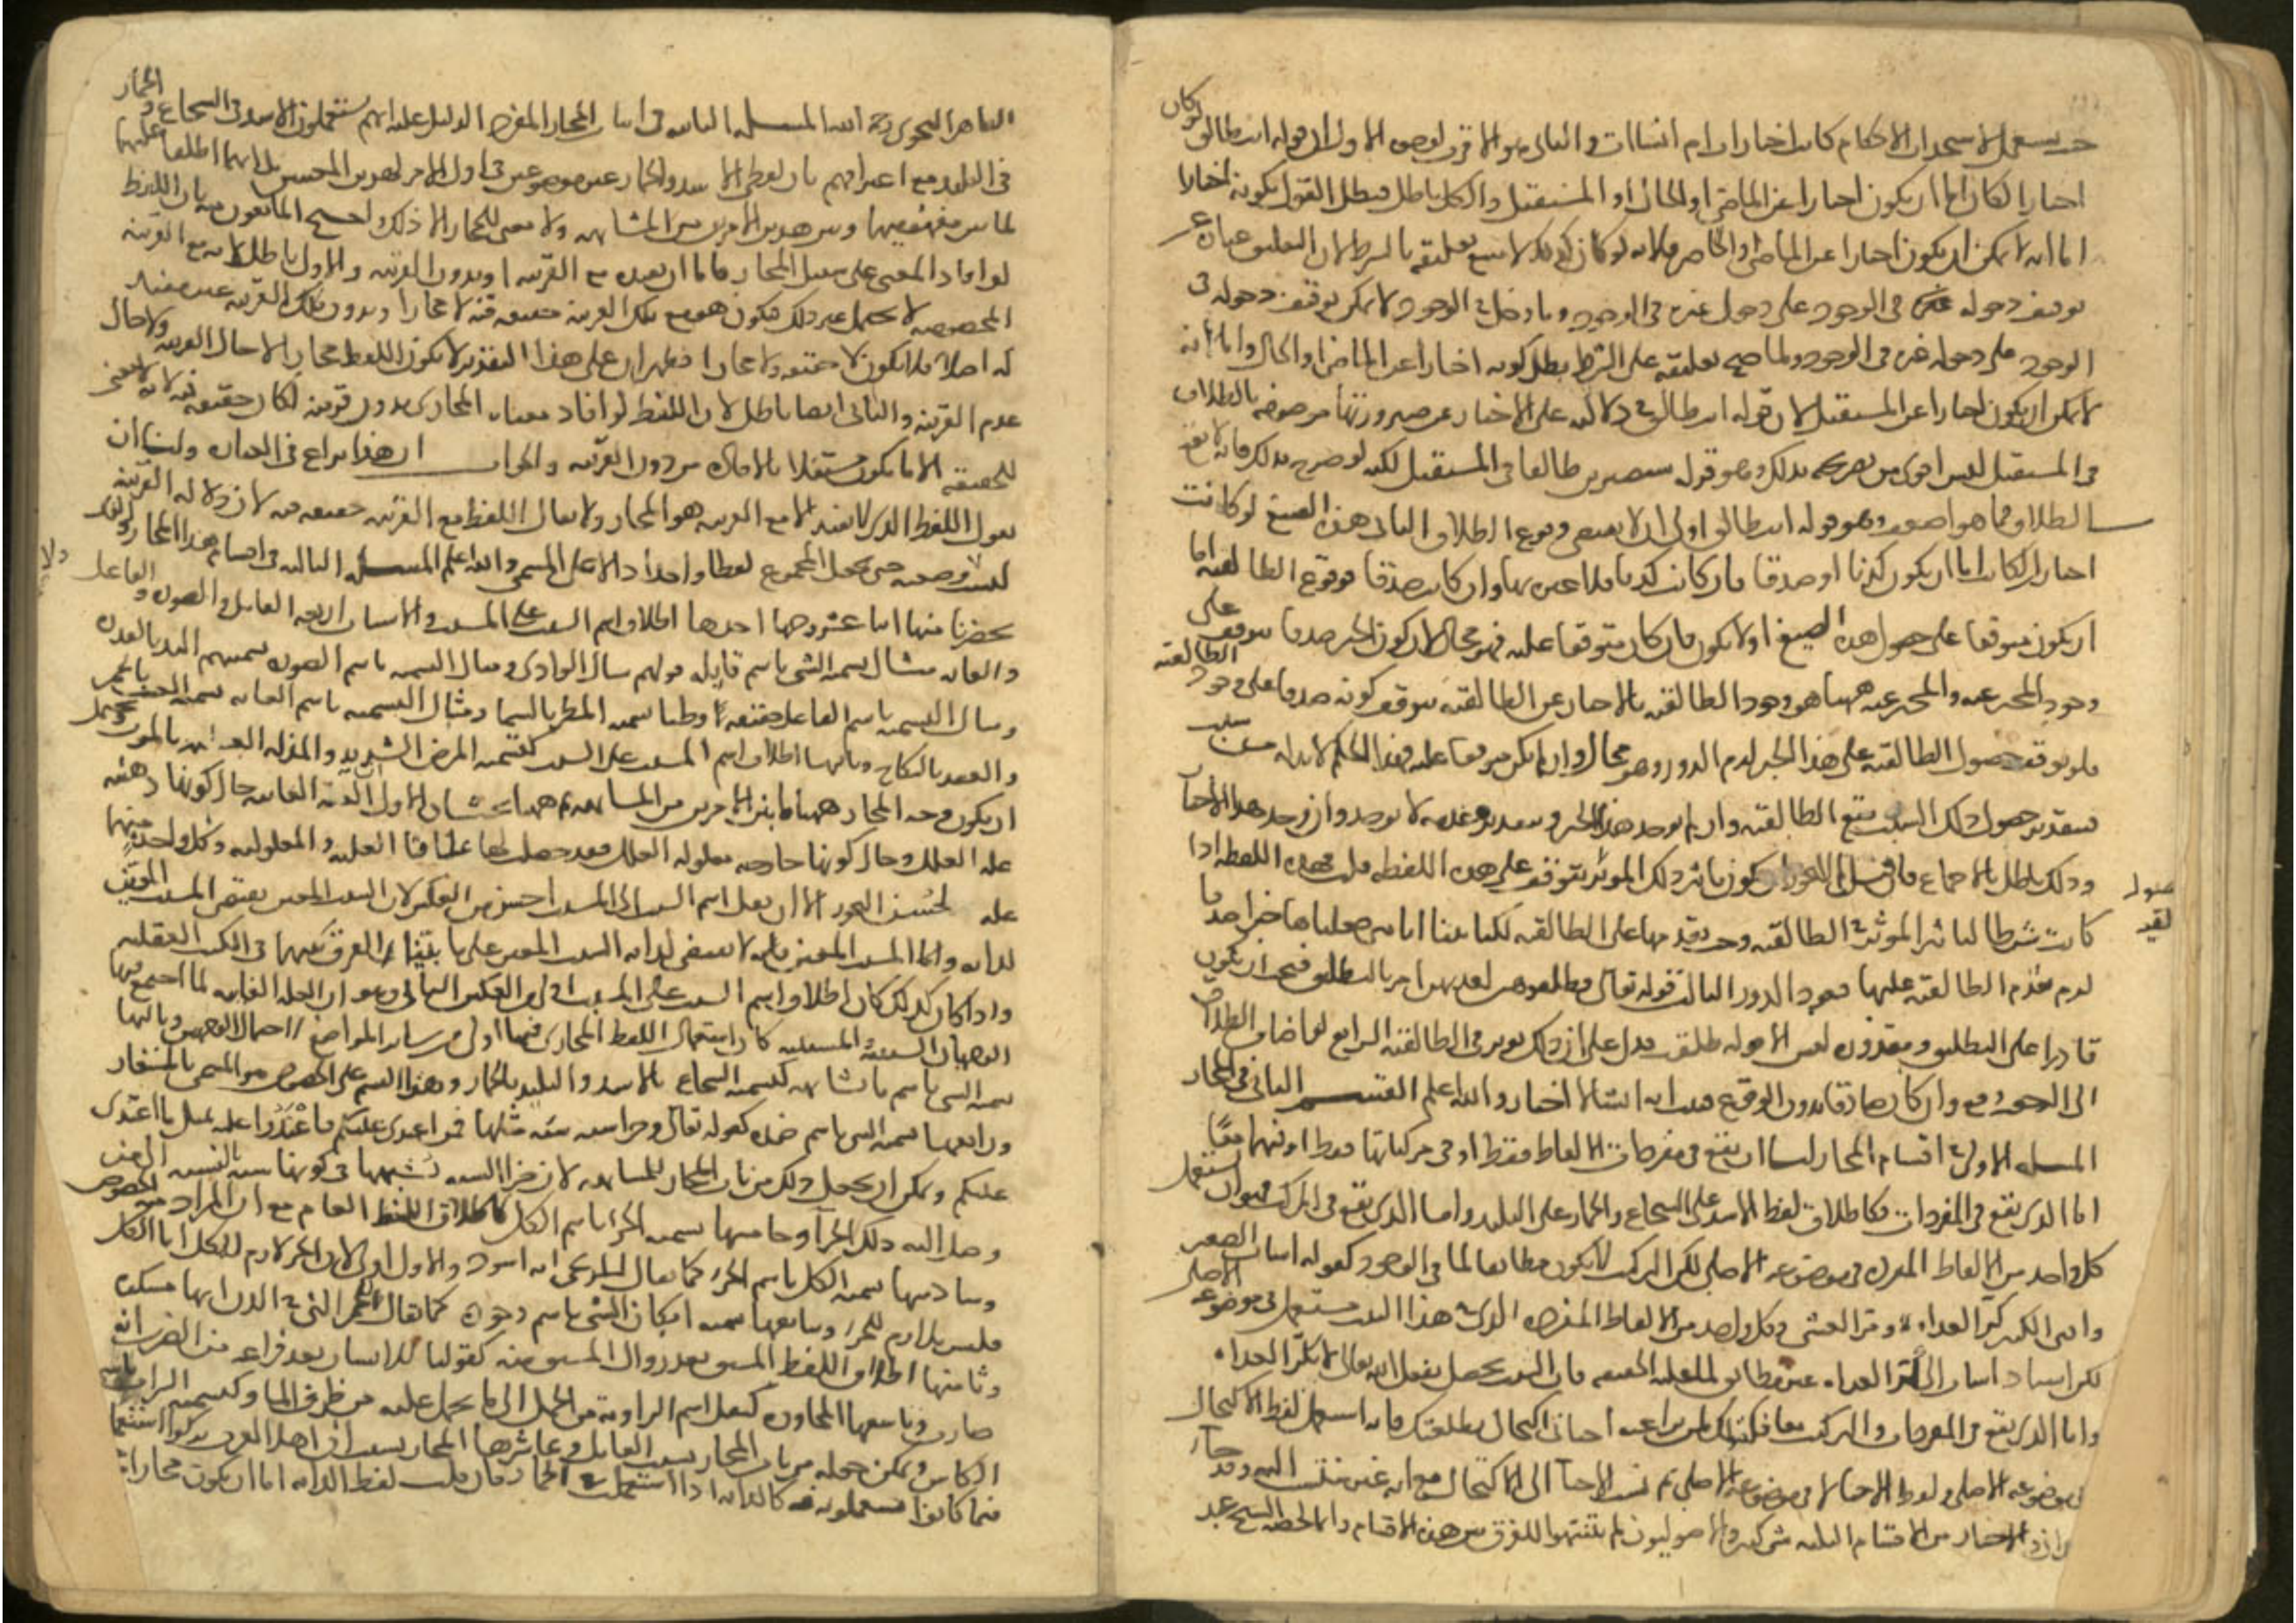 حيث يستعمل لاستحداث الاحكام كانت اخبارات ام انشاات والثاني هو الاقرب لوجوه الاول ان قوله انت طالق لو كان
اخبارا لكان اما ان يكون اخبارا عن الماضي او الحال او المستقبل والكل باطل فبطل القول بكونه اخبارا
اما انه لا يمكن ان يكون اخبارا عن الماضي او الحاضر فلانه لو كان كذلك لامتنع تعليقه بالشرط لان التعليق عبارة عن
توقيف دخوله في الوجود على دخول غيره في الوجود وما دخل في الوجود لا يمكن توقيف دخوله في
الوجود على دخول غيره في الوجود ولما صح تعليقه على الشرط بطل كونه اخبارا عن الماضي او الحال واما انه
لا يمكن ان يكون اخبارا عن المستقبل لان قوله انت طالق في دلالته على الاخبار عن صيرورتها موصوفة بالطلاق
في المستقبل ليس اقوى من تصريحه بذلك وهو قوله ستصيرين طالقا في المستقبل لكنه لو صرح بذلك فانه لا يقع
الطلاق فما هو اضعف وهو قوله انت طالق اولى ان لا يقتضي وقوع الطلاق الثاني هذه الصيغ لو كانت
اخبارا لكانت اما ان يكون كذبا او صدقا فان كانت كذبا فلا عبرة بها وان كانت صدقا فوقوع الطالقية اما
ان يكون متوقفا على حصول هذه الصيغ او لا يكون فان كان متوقفا عليه فهو محال لان كون الخبر صدقا يتوقف على
وجود المخبر عنه والمخبر عنه ههنا هو وجود الطالقية فالاخبار عن الطالقية يتوقف كونه صدقا على وجود الطالقية
فلو توقف حصول الطالقية على هذا الخبر لزم الدور وهو محال وان لم يكن متوقفا عليه فهذا الحكم لا بد له من سبب
فبتقدير حصول ذلك السبب تقع الطالقية وان لم يوجد هذا الخبر وبتقدير عدمه لا يوجد وان وجد هذا الاخبار
وذلك باطل بالاجماع فان قيل لم لا يجوز ان يكون تاثير ذلك الموثر يتوقف على هذه اللفظة قلت هذه اللفظة اذا
كانت شرطا لتاثير الموثر في الطالقية وجب تقدمها على الطالقية لكنا بينا انا متى جعلناها خبرا صدقا
لزم تقدم الطالقية عليها فيعود الدور الثالث قوله تعالى فطلقوهن لعدتهن امر بالتطليق فيجب ان يكون
قادرا على التطليق ومقدوره ليس الا قوله طلقت فدل على ان ذلك موثر في الطالقية الرابع لو اضاف الطلاق
الى الرجعية وقع وان كان صادقا بدون الوقوع فثبت انه انشا لا اخبار والله اعلم القسم الثاني في المجاز
المسله الاولى في اقسام المجاز لنسا ان يقع في مفردات الالفاظ فقط او في مركباتها فقط او فيهما معًا
اما الذي يقع في المفردات فكاطلاق لفظ الاسد على الشجاع والحمار على البليد واما الذي يقع في التركيب فهو ان يستعمل
كل واحد من الالفاظ المفردة في موضوعه الاصلي لكن التركيب لا يكون مطابقا لما في الوجود كقوله اشاب الصغير
وافنى الكبير كر الغداة ومر العشي فكل واحد من الالفاظ المفردة التي في هذا البيت مستعمل في موضوعه الاصلي
لكن اسناد اشاب الى كر الغداة غير مطابق لما عليه الحقيقة فان الشيب يحصل بفعل الله تعالى لا بكر الغداة
واما الذي يقع في المفردات والتركيب معا فكقولك لمن تداعبه احياني اكتحالي بطلعتك فانه استعمل لفظ الاكتحال
في موضوعه الاصلي ولفظ الاحيا لا في موضوعه الاصلي ثم نسب الاحيا الى الاكتحال مع انه غير منتسب اليه وقد جا
والاصوليون لم يتنبهوا للفرق بين هذه الاقسام وانما لخصه الشيخ عبد
القاهر النحوي رحمه الله المسله الثانيه في اثبات المجاز المفرد الدليل عليه انهم يستعملون الاسد في الشجاع والحمار
في البليد مع اعترافهم بان لفظي الاسد والحمار غير موضوعين في اول الامر لهذين المعنيين بل انهما اطلقا عليهما
لما بين مفهوميهما وبين هذين الامرين من المشابهه ولا معنى للمجاز الا ذلك واحتج المانعون منه بان اللفظ
لو افاد المعنى على سبيل المجاز فاما ان يفيده مع القرينة او بدون القرينه والاول باطل لانه مع القرينه
المخصوصه لا يحتمل غير ذلك فيكون هو مع تلك القرينه حقيقه فيه لا مجازا وبدون تلك القرينه غير مفيد
له اصلا فلا يكون لا حقيقه ولا مجازا فظهر ان على هذا التقدير لا يكون اللفظ مجازا لا حال القرينه ولا حال
عدم القرينه والثاني ايضا باطل لان اللفظ لو افاد معناه المجازي بدون قرينه لكان حقيقه فيه لانه لا معنى
للحقيقه الا ما يكون مستقلا بالافاده من دون القرينه والجواب ان هذا نزاع في العباره ولنا ان
نقول اللفظ الذي لا يفيد الا مع القرينه هو المجاز ولا يقال اللفظ مع القرينه حقيقه فيه لان دلاله القرينه
ليست وضعيه حتى يجعل المجموع لفظا واحدا دالا على المسمى والله اعلم المسله الثالثه في اقسام هذا المجاز والذي
يحضرنا منها اثنا عشر وجها احدها اطلاق اسم السبب على المسبب والاسباب اربعه القابل والصوره والفاعل
والغايه مثال تسميه الشي باسم قابله قولهم سال الوادي ومثال التسميه باسم الصوره تسميتهم اليد بالقدره
ومثال التسميه باسم الفاعل حقيقة او ظنا تسميه المطر بالسما ومثال التسميه باسم الغايه تسميه العنب بالخمر
والعقد بالنكاح وثانيها اطلاق اسم المسبب على السبب كتسميه المرض الشديد والمذله العظيمه بالموت ويحتمل
ان يكون وجه المجاز ههنا ما بين الامرين من المشابهه ثم ههنا بحثان الاول العله الغائيه حال كونها ذهنيه
عله العلل وحال كونها خارجيه معلوله العلل فقد حصلت لها علاقتا العليه والمعلوليه وكل واحده منهما
عله لحسن التجوز الا ان نقل اسم السبب الى المسبب احسن من العكس لان السبب المعين يقتضي المسبب المعين
لذاته واما المسبب المعين فانه لا يقتضي لذاته السبب المعين على ما بينا الفرق بينهما في الكتب العقليه
واذا كان كذلك كان اطلاق اسم السبب على المسبب اولى من العكس الثاني وهو ان العله الغائيه لما اجتمع فيها
الوجهان السببيه والمسببيه كان استعمال اللفظ المجازي فيها اولى من سائر المواضع لاحتمال الوجهين وثالثها
تسميه الشي باسم ما يشابهه كتسميه الشجاع بالاسد والبليد بالحمار وهذا القسم على الخصوص هو المسمى بالمستعار
ورابعها تسميه الشي باسم ضده كقوله تعالى وجزا سيئه سيئه مثلها فمن اعتدى عليكم فاعْتَدُوا عليه بمثل ما اعتدى
عليكم ويمكن ان يجعل ذلك من باب المجاز للمشابهه لان جزا السيئه تشبهها في كونها سيئه بالنسبه الى من
وصل اليه ذلك الجزا وخامسها تسميه الجزا باسم الكل كاطلاق اللفظ العام مع ان المراد منه الخصوص
وسادسها تسميه الكل باسم الجز كما يقال للزنجي انه اسود والاول اولى لان الجز لازم للكل اما الكل
فليس بلازم للجز وسابعها تسميه امكان الشي باسم وجوده كما يقال للخمر التي في الدن انها مسكره
وثامنها اطلاق اللفظ المشتق بعد زوال المشتق منه كقولنا للانسان بعد فراغه من الضرب انه
ضارب وتاسعها المجاوره كنقل اسم الراويه من الجمل الى ما يحمل عليه من ظرف الما وكتسميه الشراب باسم
الكاس ويمكن جعله من باب المجاز بسبب القابل وعاشرها المجاز بسبب ان اهل العرف تركوا استعمال
فيما كانوا يستعملونه فيه كالدابه اذا استعملت في الحمار فان قلت لفظ الدابه اما ان يكون مجازا